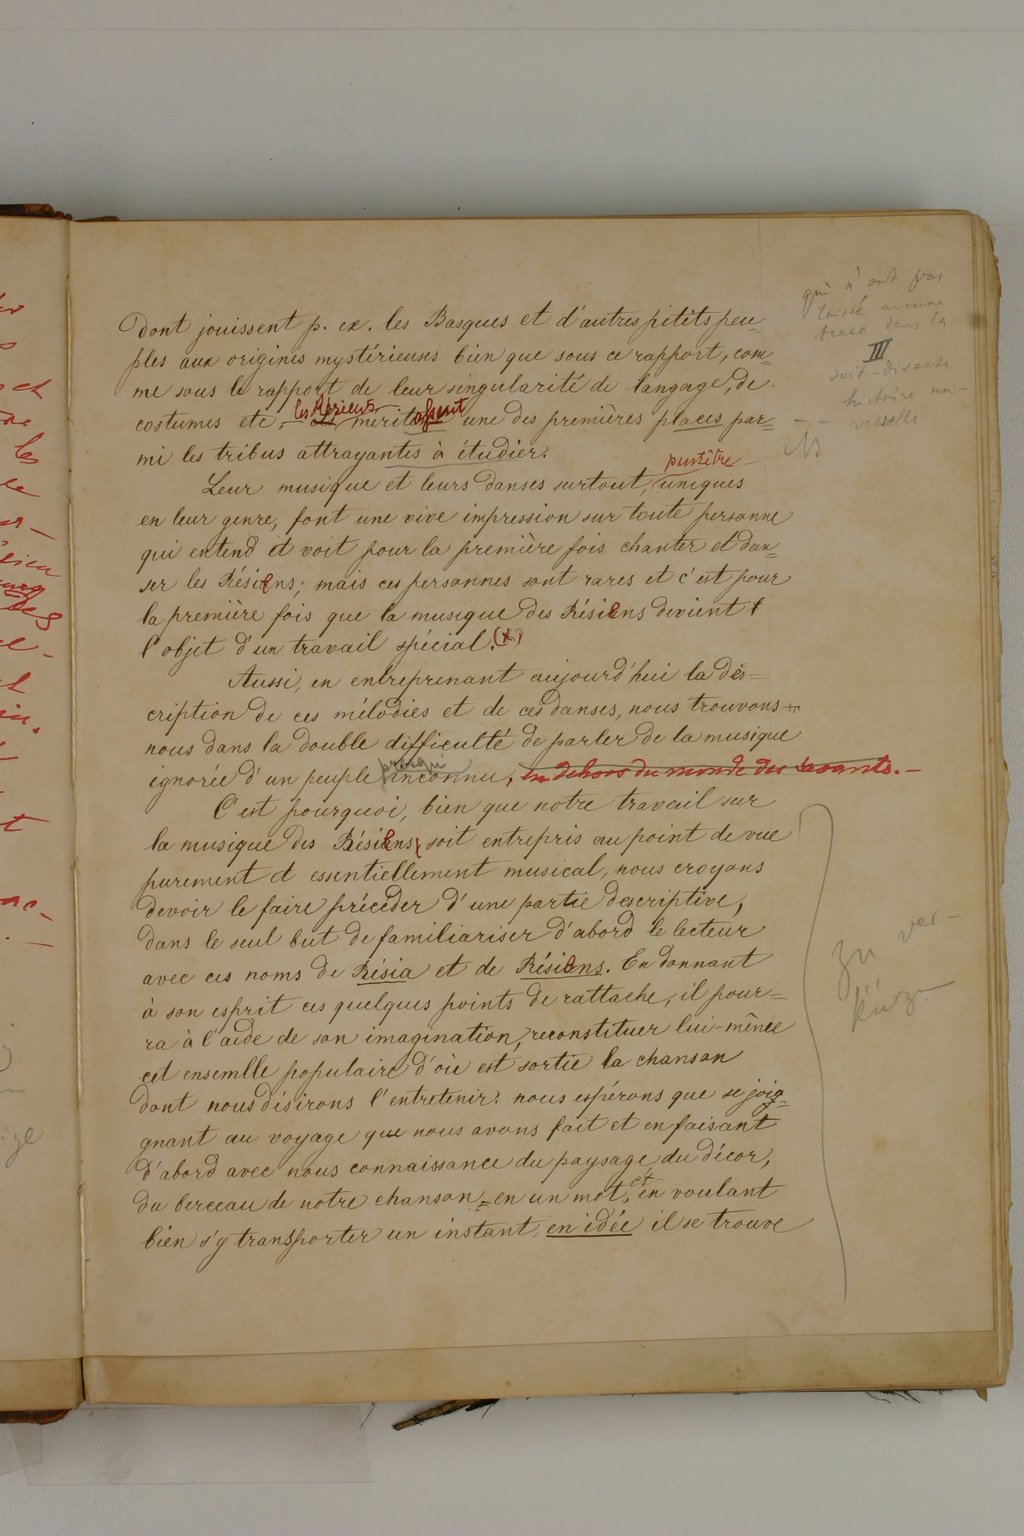 qui n'ont pas
laissé aucune
trace dans la
III
soit-disante
histoire uni-
verselle
dont jouissent p. ex. les Basques et d'autres petits peu=
ples aux origines mystérieuses bien que sous ce rapport, com=
me sous le rapport de leur singularité de langage, de
les Résiens
costumes etc. méritassent une des premières places par=
mi les tribus attrayantes à étudier.
peutêtre
Leur musique et leurs danses surtout, uniques
en leur genre, font une vive impression sur toute personne
qui entend et voit pour la première fois chanter et dan=
ser les Résiens; mais ces personnes sont rares et c'est pour
la première fois que la musique des Résiens devient
l'objet d'un travail spécial. (x)
Aussi, en entreprenant aujourd'hui la dès=
cription de ces mélodies et de ces danses, nous trouvons-
nous dans la double difficulté de parler de la musique
presqu'
ignorée d'un peuple inconnu, en dehors du monde des savants. —
C'est pourquoi, bien que notre travail sur
la musique des Résiens soit entrepris au point de vue
purement et essentiellement musical, nous croyons
devoir le faire précéder d'une partie descriptive,
dans le seul but de familiariser d'abord le lecteur
avec ces noms de Résia et de Résiens. En donnant
à son esprit ces quelques points de rattache, il pour=
ra à l'aide de son imagination, reconstituer lui-même
cet ensemble populaire d'où est sortie la chanson
dont nous désirons l'entretenir. nous espérons que se joig=
gnant au voyage que nous avons fait et en faisant
d'abord avec nous connaissance du paysage, du décor,
et
du berceau de notre chanson, = en un mot, en voulant
bien s'y transporter un instant, en idée il se trouve
zu ver-
kürz.